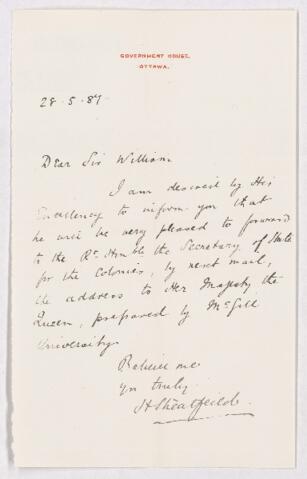 GOVERNMENT HOUSE,
OTTAWA.
28-5-87
Dear Sir William
I am desired by His
Excellency to inform you that
he will be very pleased to forward
to the Rt. Hnble the Secretary of State
for the Colonies, by next mail,
the address to Her Majesty the
Queen, prepared by McGill
University.
Believe me
yrs truly
H Streatfeild